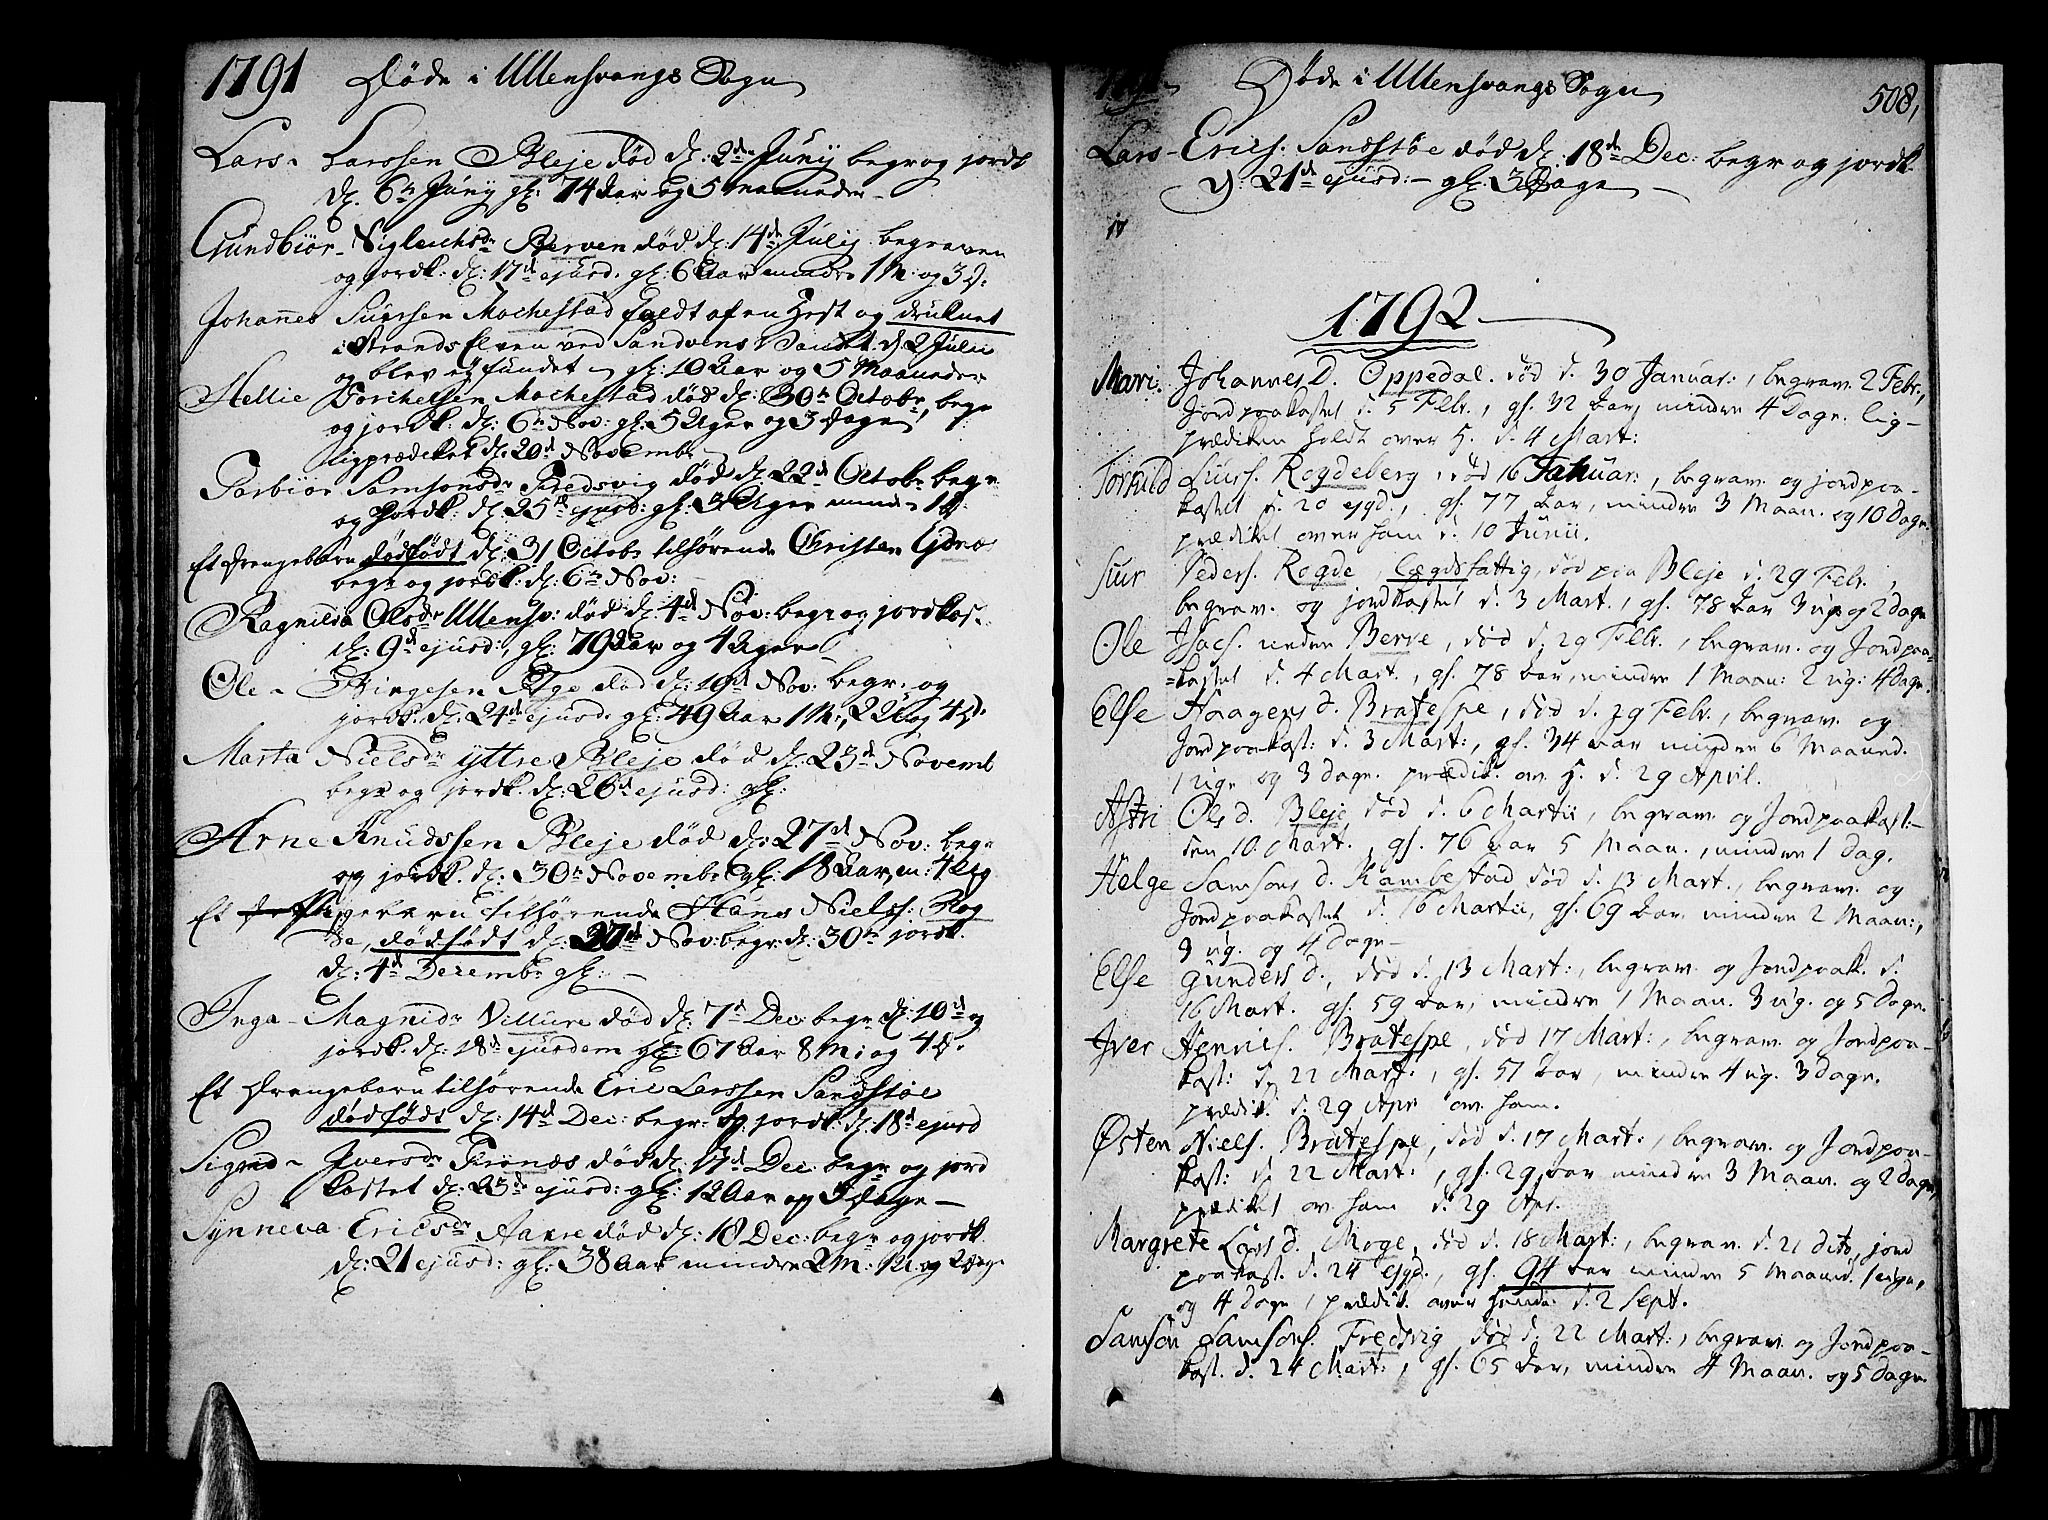 1791 Døde i Ullensvangs Sogn
Lars Larssen Bleje død d: 2de Juny begr og jordk
d. 6te Juny gl: 74 Aar og 5 maaneder
Gundbiør Siglechsdr Berven død d: 14de July begraven
og jordk: d: 17d ejusd. gl: 6 Aar mindre 1 M. og 3 D:
Johannes Siurssen Mochestad faldt af en Hest og druknet
i Strands Elven ved Sandvens Vandet d 2 Julii
og blev ej fundet gl: 10 Aar og 5 Maaneder
Hellie Torchelsen Mochestad død d: 30te Octobr begr
og jordk: d: 6te Nov: gl: 5 Uger og 3 dage
ligprædeket d: 20d Novembr
Torbiør Samsonsdr Fredsvig død d: 22d Octobr begr
og jordk: d: 25de ejusd: gl: 3 Uger mind 1 D:
Et drengebarn dødfødt d: 31 Octobr tilhørende Christen Ednæs
begr og jordk: d: 6te Nov:
Ragnilda Olsdr Ullensv: død d: 4d Nov: begr og jordkas
d: 9d ejusd: gl: 79 Aar og 4 Uger
Ole Aige død d: 19d Nov: begr: og
jordk. d: 24d ejusd. gl: 49 Aar 1 M:, 2 U og 4 D.
Marta Nielsdr yttre Bleje død d: 23d Novemb
begr og jordk. d: 26d ejusd: gl:
Arne Knudssen Bleje død d: 27d Nov: begr
og jordk. d: 30te Novembr gl: 18 Aar, m: 4 Ug
Et Pigebarn tilhørende Hans Nielss: Rog
de, dødfødt d: 27d Nov: begr: d: 30te jordk.
d: 4d Decembr gl:
Inga Magnidr Villure død d: 7d Dec: begr d: 10d og
jordk. d: 18d ejusdem gl: 67 Aar 8 M: og 4 D.
Et Drengebarn tilhørende Eric Larssen Sandstøe
dødfødt d: 14d Dec: begr: og jordk: d: 18d ejusd
Sigrid Iversdr Tronæs død d: 17d Dec: begr og jord
kastet d: 23de ejusd: gl: 12 Aar og dage
Synneva Ericsdr Aavre død d: 18 Dec: begr og jordk.
d: 21 ejusd: gl: 38 Aar mindre 2 M: 1 U. og 2 Dage
1791 Døde i Ullensvangs Sogn 508,
Lars Erics: Sandstøe død d: 18de Dec: begr og jordk
d: 21de ejusd: gl. 3 Dage
1792
Mari Johannes D. Oppedal. død d. 30 Januar:, begrav. 2 Febr.,
Jordpaakastet d. 5 Febr., gl. 32 Aar, mindre 4 Dage. lig-
prædiken holdt over H. d. 4 Mart:
Torkild Siurs. Rogdeberg, død 16 Januar:, begrav. og jordpaa-
kastet d. 20 ejgd., gl. 77 Aar, mindre 3 Maan. og 10 Dage.
prædiket over ham d. 10 Junii.
Siur Peders. Rogde, Lægdsfattig, død paa Bleje d. 29 Febr.,
begrav. og jordkastet d. 3 Mart., gl. 78 Aar 3 ug. og 2 Dage
Ole Isacs. nedre Berve, død d. 29 Febr., begrav. og Jordpaa-
kastet d. 4 Mart., gl. 78 Aar, mindre 1 Maan: 2 ug: 4 Dage.
Else Haagens d. Bratespe, død d. 29 Febr., begrav. og
Jordpaakast: d. 3 Mart:, gl. 34 Aar mindre 6 Maaned.
1 uge og 3 dage. prædik. ov. H. d. 29 April.
Astri Ols d. Bleje død d. 6 Martii, begrav. og Jordpaakast:
den 10. Mart., gl. 76 Aar 5 Maan., mindre 1 dag.
Helge Samsons d. Kambestad død d. 13 Mart., begrav. og
Jordpaakastet d. 16 Martii, gl. 69 Aar mindre 2 Maan:,
3 ug. og 4 Dage
Else Gunders d., død d. 13 Mart:, begrav. og Jordpaak. d.
16 Mart. gl. 59 Aar, mindre 1 Maan. 3 ug. og 5 Dage.
Iver Henrics. Bratespe, død 17 Mart:, begrav. og Jordpaa-
kast: d. 22 Mart:, gl. 57 Aar, mindre 4 ug. 3 Dage.
prædik. d. 29 Apr ov. ham.
Østen Niels. Bratespe, død d. 17 Mart:, begrav. og Jordpaa-
kast: d. 22 Mart:, gl. 29 Aar mindre 3 Maan. og 2 Dage,
prædiket ov. ham d. 29 Apr.
Margrete Lars d. Moge, død d. 18 Mart:, begrav. d. 21 dito, jord
paakast. d. 24 ejgd., gl. 94 Aar mindre 5 Maaned. 1 uge,
og 4 Dage, prædik. over hende d. 2 Sept.
Samson Samsons. Fredsvig død d. 22 Mart:, begrav. og Jordpaa-
kast. d. 24 Mart:, gl. 65 Aar, mindre 4 Maan. og 5 Dage.